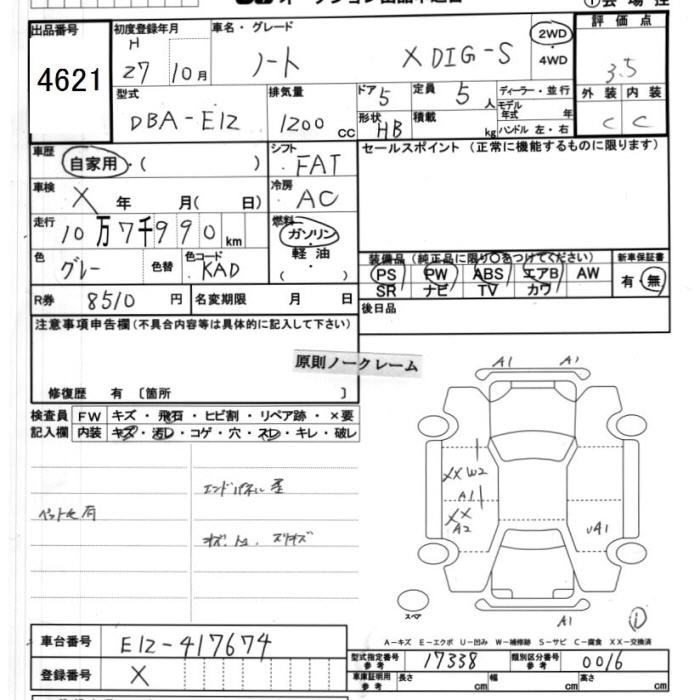 オークション出品申込書
出品番号 初度登録年月 車名・グレード 評価点
4621 H 27 10月 ノート X DIG-S 2WD 4WD 3.5
型式 排気量 ドア 定員 ディーラー・並行 外装 内装
DBA-E12 1200 CC 5 5 人 モデル年式 年 C C
形状 HB 積載 kg ハンドル 左・右
車歴 自家用・( ) シフト FAT セールスポイント (正常に機能するものに限ります)
車検 X 年 月( 日) 冷房 AC
走行 10万7千990km 燃料 ガソリン・軽油・( )
色 グレー 色替 色コード KAD
装備品 (純正品に限り○をつけてください) 新車保証書
PS PW ABS エアB AW 有・無
SR ナビ TV カワ
R券 8510 円 名変期限 月 日 後日品
注意事項申告欄 (不具合内容等は具体的に記入して下さい)
原則ノークレーム
修復歴 有 〔箇所 〕
検査員 FW キズ・飛石・ヒビ割・リペア跡・×要
記入欄 内装 キズ・汚レ・コゲ・穴・スレ・キレ・破レ
エンドパネル
ペット毛有
A1 A1
XX W2
A1
XX
A2
U A1
スペア
A1
①
A-キズ E-エクボ U-凹み W-補修跡 S-サビ C-腐食 XX-交換済
車台番号 E12-417674
型式指定番号 参考 17338 類別区分番号 参考 0016
登録番号 X
車庫証明用 参考 長さ cm 幅 cm 高さ cm